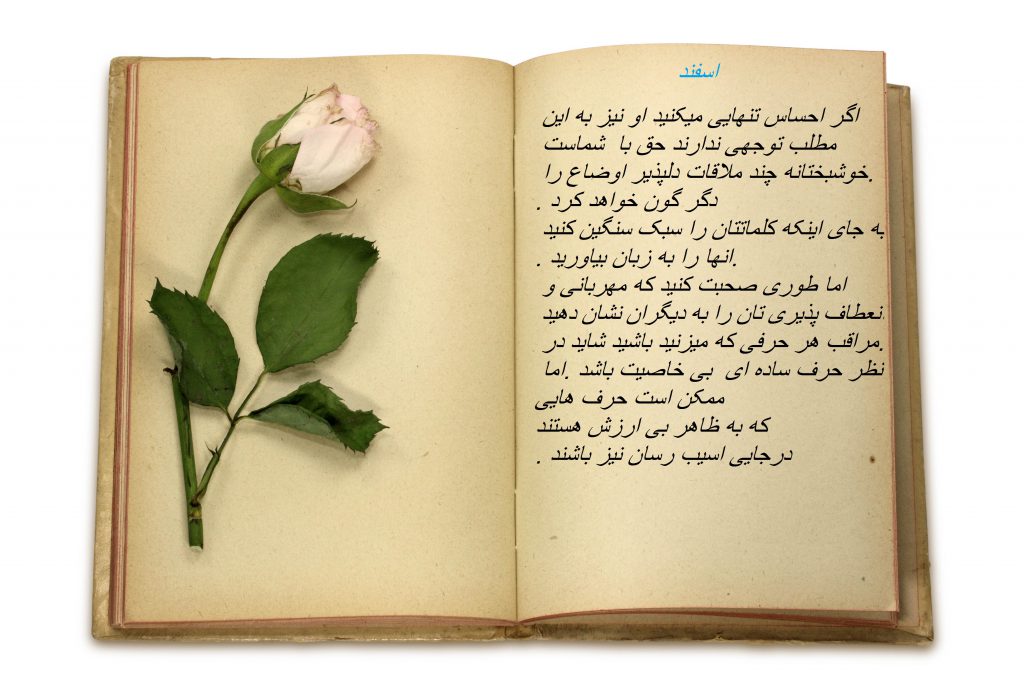 اسفند
اگر احساس تنهایی میکنید او نیز به این
مطلب توجهی ندارند حق با شماست
.خوشبختانه چند ملاقات دلپذیر اوضاع را
دگر گون خواهد کرد .
به جای اینکه کلماتتان را سبک سنگین کنید
.انها را به زبان بیاورید .
اما طوری صحبت کنید که مهربانی و
انعطاف پذیری تان را به دیگران نشان دهید
.مراقب هر حرفی که میزنید باشید شاید در
نظر حرف ساده ای بی خاصیت باشد .اما
ممکن است حرف هایی
که به ظاهر بی ارزش هستند
درجایی اسیب رسان نیز باشند .